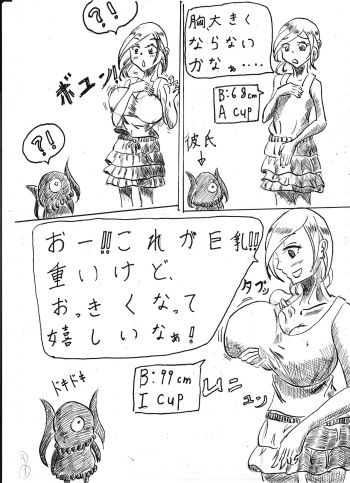 胸、大きく
ならない
かなぁ・・・・
B:68cm
A cup
彼氏
?!
ボユン!!
?!
おー!!これが巨乳!!
重いけど、
おっきくなって
嬉しいなぁ!
タプッ
B:99cm
I cup
ドキドキ